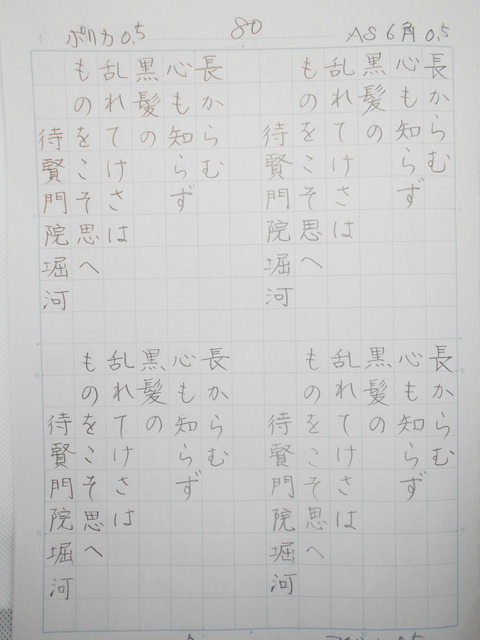 ポリカ 0.5
80
AS 6角 0.5
長からむ
心も知らず
黒髪の
乱れてけさは
ものをこそ思へ
待賢門院堀河
長からむ
心も知らず
黒髪の
乱れてけさは
ものをこそ思へ
待賢門院堀河
長からむ
心も知らず
黒髪の
乱れてけさは
ものをこそ思へ
待賢門院堀河
長からむ
心も知らず
黒髪の
乱れてけさは
ものをこそ思へ
待賢門院堀河